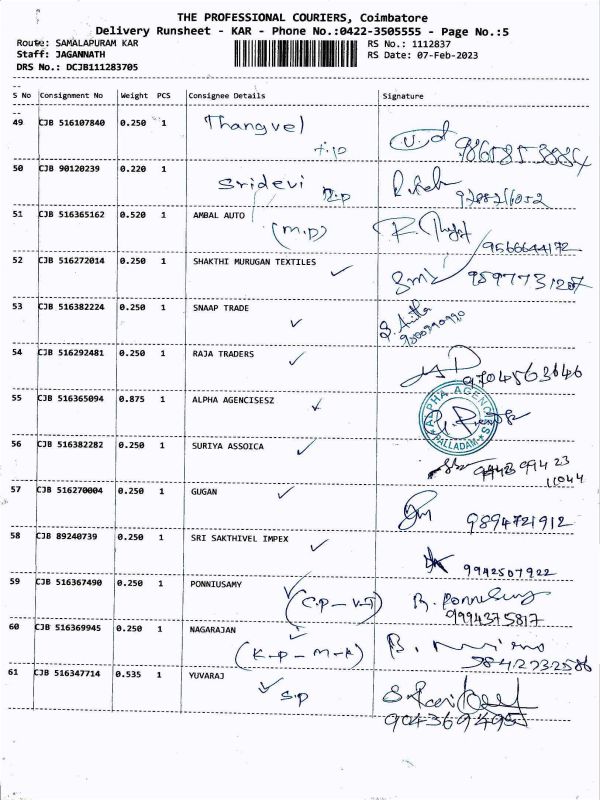 THE PROFESSIONAL COURIERS, Coimbatore
Delivery Runsheet - KAR - Phone No.:0422-3505555 - Page No.:5
Route: SAMALAPURAM KAR RS No.: 1112837
Staff: JAGANNATH RS Date: 07-Feb-2023
DRS No.: DCJB111283705
S No Consignment No Weight PCS Consignee Details Signature
49 CJB 516107840 0.250 1 Thangvel
50 CJB 90120239 0.220 1 Sridevi
51 CJB 516365162 0.520 1 AMBAL AUTO
(M.P) 9566644172
52 CJB 516272014 0.250 1 SHAKTHI MURUGAN TEXTILES 9597731207
53 CJB 516382224 0.250 1 SNAAP TRADE
54 CJB 516292481 0.250 1 RAJA TRADERS
9704563646
55 CJB 516365094 0.875 1 ALPHA AGENCISESZ
ALPHA AGENCIES
PALLADAM
56 CJB 516382282 0.250 1 SURIYA ASSOICA
57 CJB 516270004 0.250 1 GUGAN
9894721912
58 CJB 89240739 0.250 1 SRI SAKTHIVEL IMPEX
9942507922
59 CJB 516367490 0.250 1 PONNIUSAMY
9994375817
60 CJB 516369945 0.250 1 NAGARAJAN
9842232586
61 CJB 516347714 0.535 1 YUVARAJ
S.P
9043694955